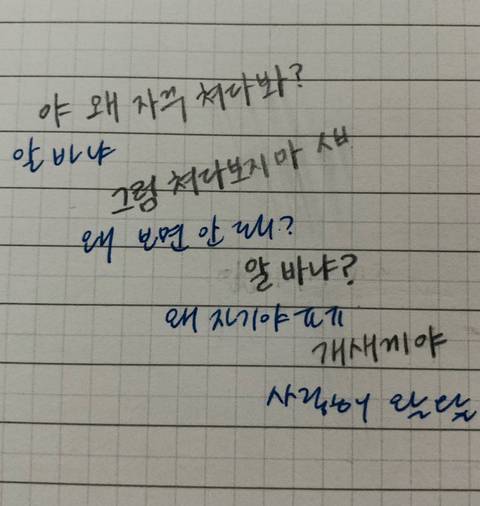 야 왜 자꾸 쳐다봐?
알 바냐
그럼 쳐다보지 마
왜 보면 안 돼?
알 바냐?
왜 자기야
개새끼야
사랑해